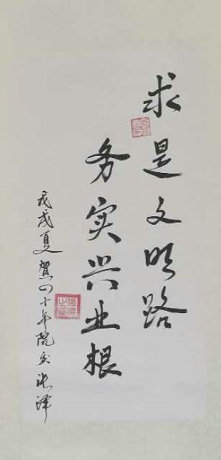 求是文明路
务实兴业根
戊戌夏贺四十年院庆